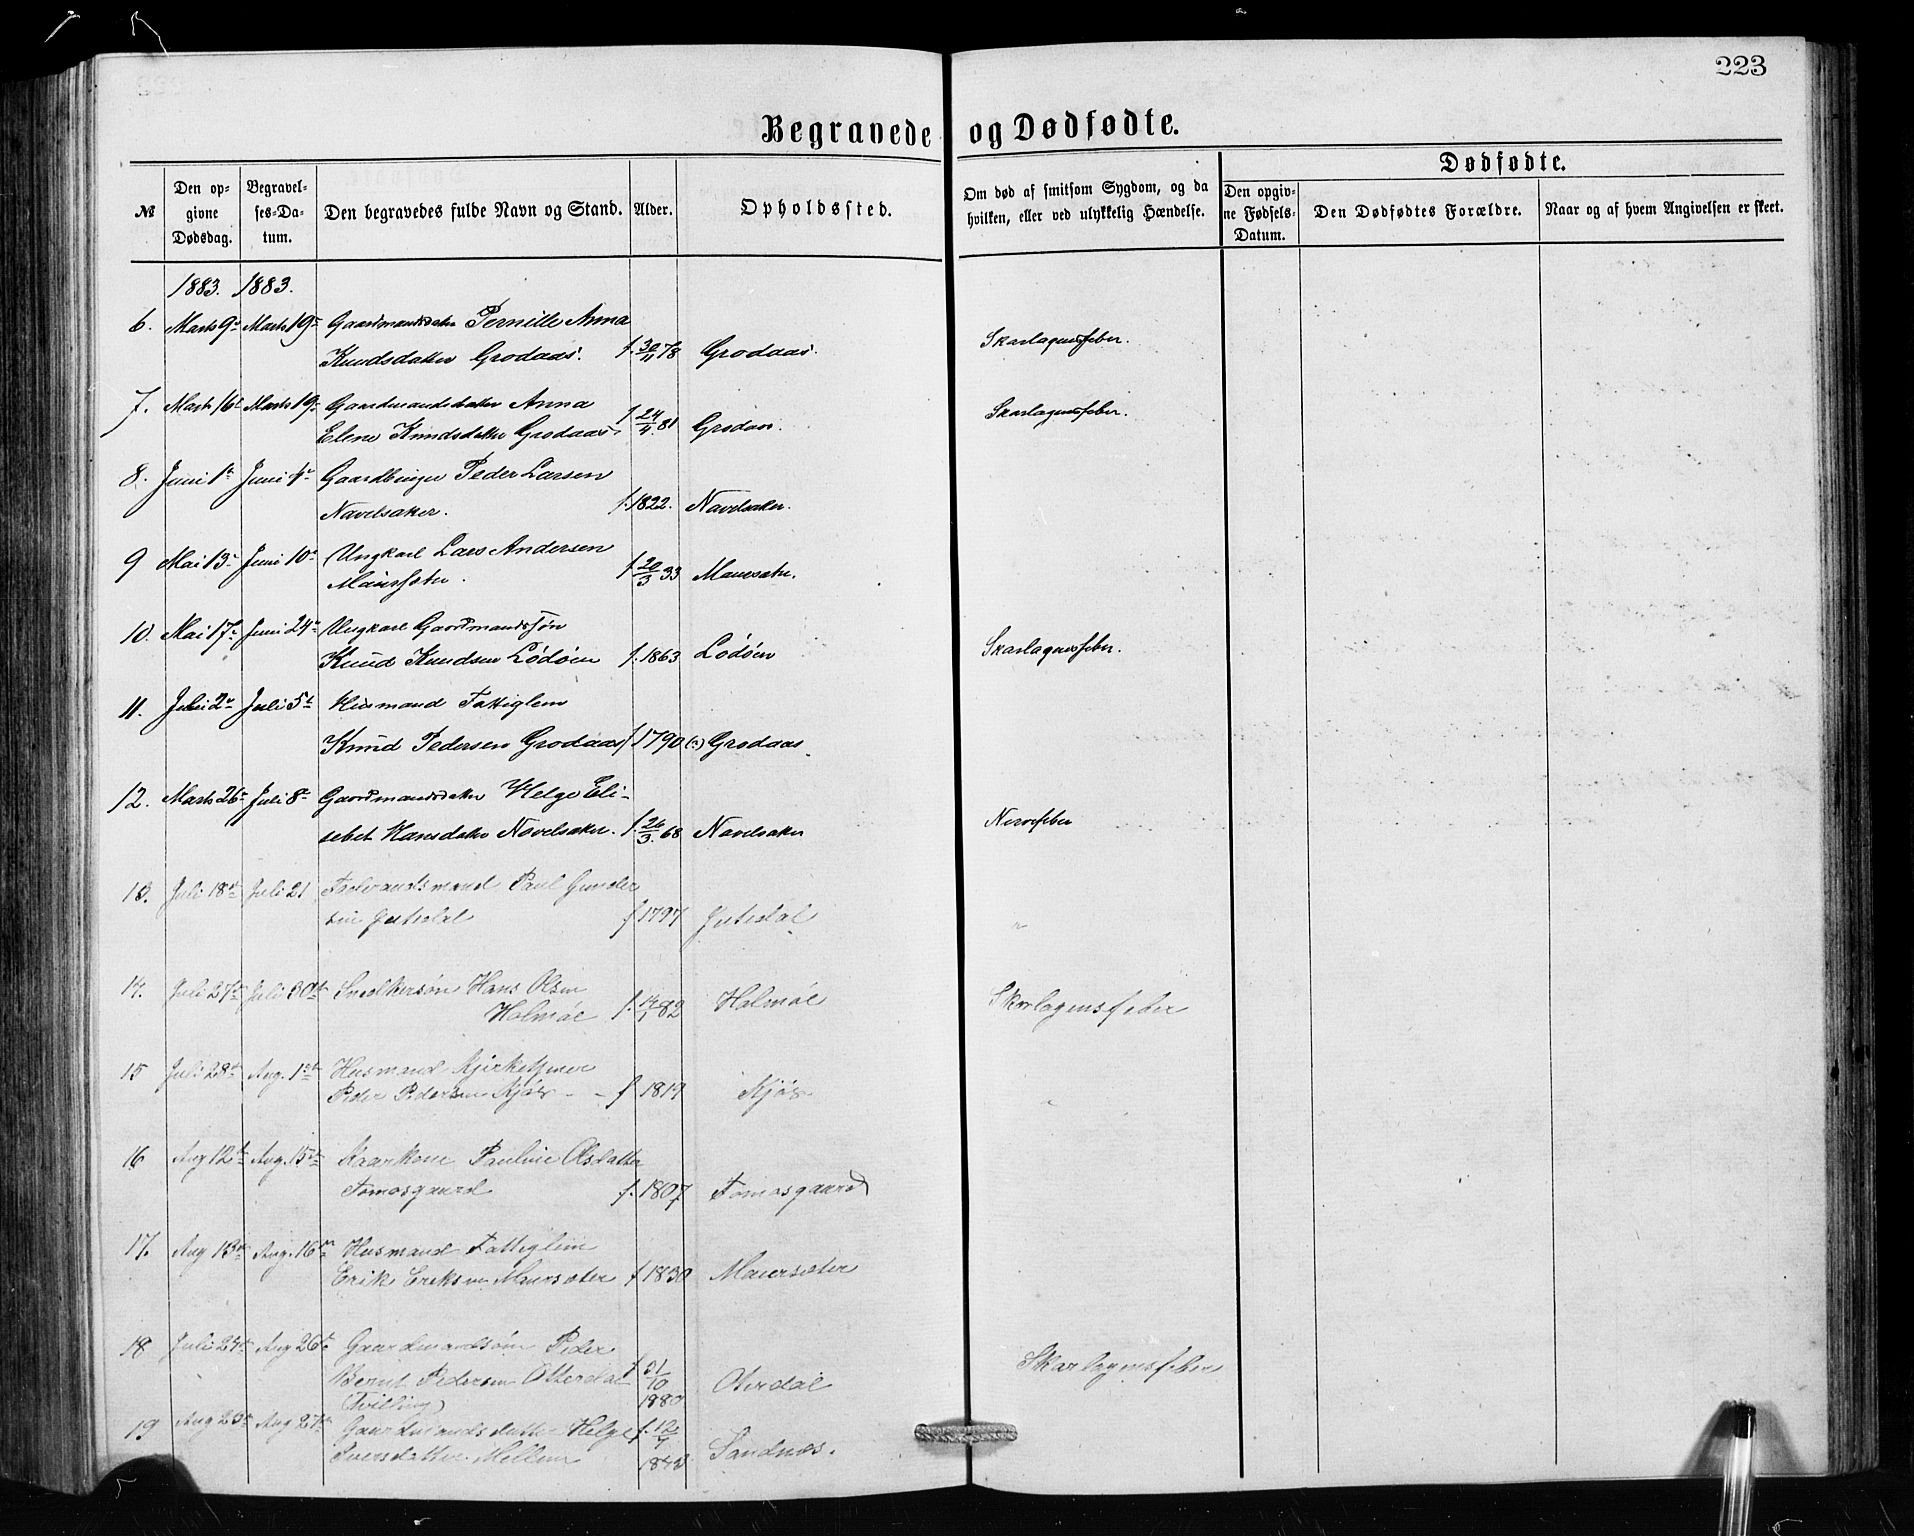 223
Begravede og Dødfødte.
Dødfødte.
№ Den opgivne Dødsdag. Begravelses-Datum. Den begravedes fulde Navn og Stand. Alder. Opholdssted. Om død af smitsom Sygdom, og da hvilken, eller ved ulykkelig Hændelse. Den opgivne Fødsels-Datum. Den Dødfødtes Forældre. Naar og af hvem Angivelsen er skeet.
1883. 1883.
6. Marts 9de Marts 19de Gaardmandsdatter Pernille Anna
Knudsdatter Grodaas. f. 30/11 78 Grodaas. Skarlagensfeber.
7. Marts 16de Marts 19de Gaardmandsdatter Anna
Elene Knudsdatter Grodaas f. 24/4 81 Grodaas. Skarlagensfeber.
8. Juni 1te Juni 4de Gaardbruger Peder Larsen
Navelsaker. f. 1822. Navelsaker.
9 Mai 13de Juni 10de Ungkarl Lars Andersen
Maursæter. f. 20/3 33 Maursæter.
10. Mai 17de Juni 24de Ungkarl Gaardmandssøn
Knud Knudsen Lødøen f. 1863 Lødøen Skarlagensfeber.
11. Juli 2den Juli 5te Husmand Fattiglem
Knud Pedersen Grodaas f. 1790 (?) Grodaas.
12. Marts 26de Juli 8de Gaardmandsdatter Helge Eli-
sebet Hansdatter Navelsaker. f. 26/3. 68 Navelsaker Nervefeber
13. Juli 18de Juli 21 Føderaadsmand Paul Gunder
sen f 1797 "
14. Juli 27de Juli 30te Snedkersøn Hans Olsen
Holmøe f. 14/1 82 Holmøe Skarlagensfeber
15 Juli 28de Aug. 1ste Husmand Kirketjener
Peder Pedersen Kjøs - - f 1819 Kjøs "
16 Aug 12te Aug. 15de Kaarkone Pauline Olsdatter
Tomasgaard f. 1807 Tomasgaard
17. Aug 13de Aug. 16de Husmand Fattiglem
Erik Eriksen Maursæter f 1830 Maursæter
18 Juli 24de Aug 26de Gaardmandsøn Peder
Bernt Pedersen Otterdal f 31/10 Oterdal Skarlagensfeber
(Tvilling) 1880
19 Aug 23de Aug 27de Gaardmandsdatter Helge f. 12/7
Iversdatter Mellem Sandnæs.